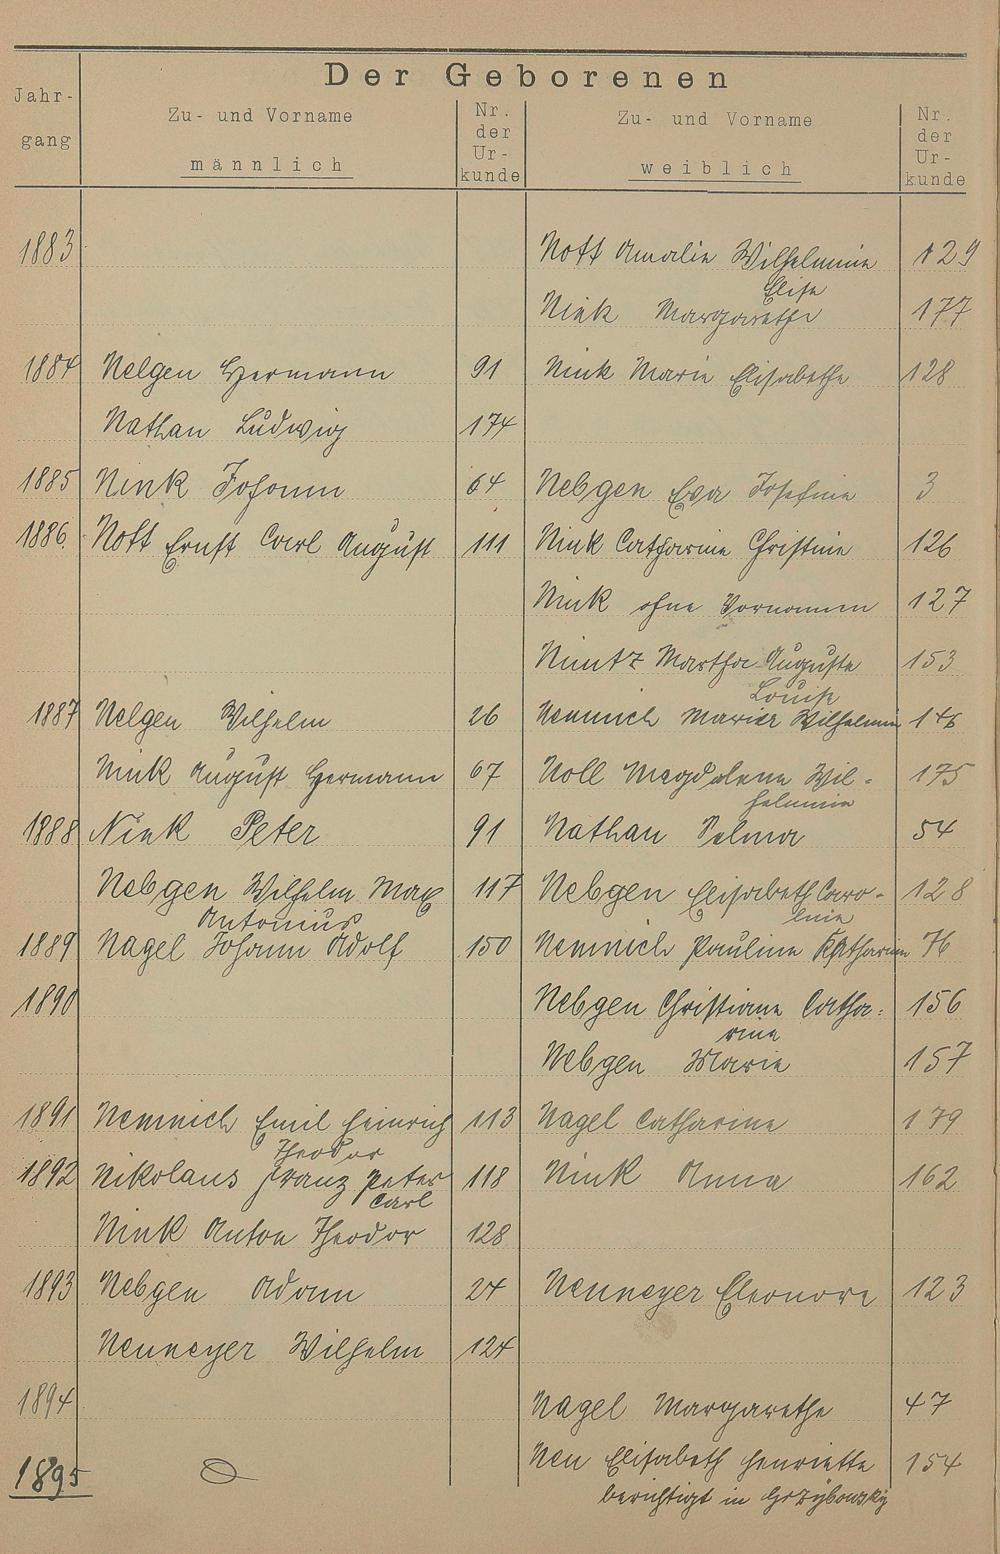 Der Geborenen
Jahr-
gang
Zu- und Vorname
männlich
Nr.
der
Ur-
kunde
Zu- und Vorname
weiblich
Nr.
der
Ur-
kunde
1883 Nott Amalie Wilhelmine 129
Elise
Nink Margarethe 177
1884 Nelgen Hermann 91 Nink Marie Elisabethe 128
Nathan Ludwig 174
1885 Nink Johann 64 Nebgen Eva Josefine 3
1886. Nott Ernst Carl August 111 Nink Catharine Christine 126
Nink ohne Vornamen 127
Nintz Martha Auguste 153
Louise
1887 Nelgen Wilhelm 26 Nemnich Maria Wilhelmin 146
Nink August Hermann 67 Noll Magdalena Wil- 175
helmine
1888 Nink Peter 91 Nathan Selma 54
Nebgen Wilhelm Max 117 Nebgen Elisabeth Caro- 128
Antonius line
1889 Nagel Johann Adolf 150 Nemnich Pauline Katharine 76
1890 Nebgen Christiane Catha- 156
rine
Nebgen Marie 157
1891 Nemnich Emil Heinrich 113 Nagel Catharine 179
Theodor
1892 Nikolaus Franz Peter 118 Nink Anna 162
Carl
Nink Anton Theodor 128
1893 Nebgen Adam 24 Nenneyer Eleonore 123
Nenneyer Wilhelm 124
1894 Nagel Margarethe 47
1895 Neu Elisabeth Henriette 154
berichtigt in Grzybowsky